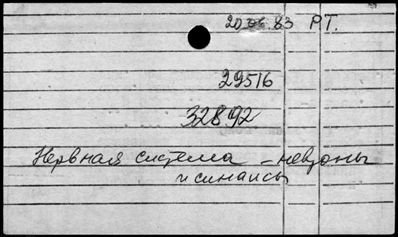 20.06.83 P.T.
29516
32892
Нервная система - невроны
и синапсы